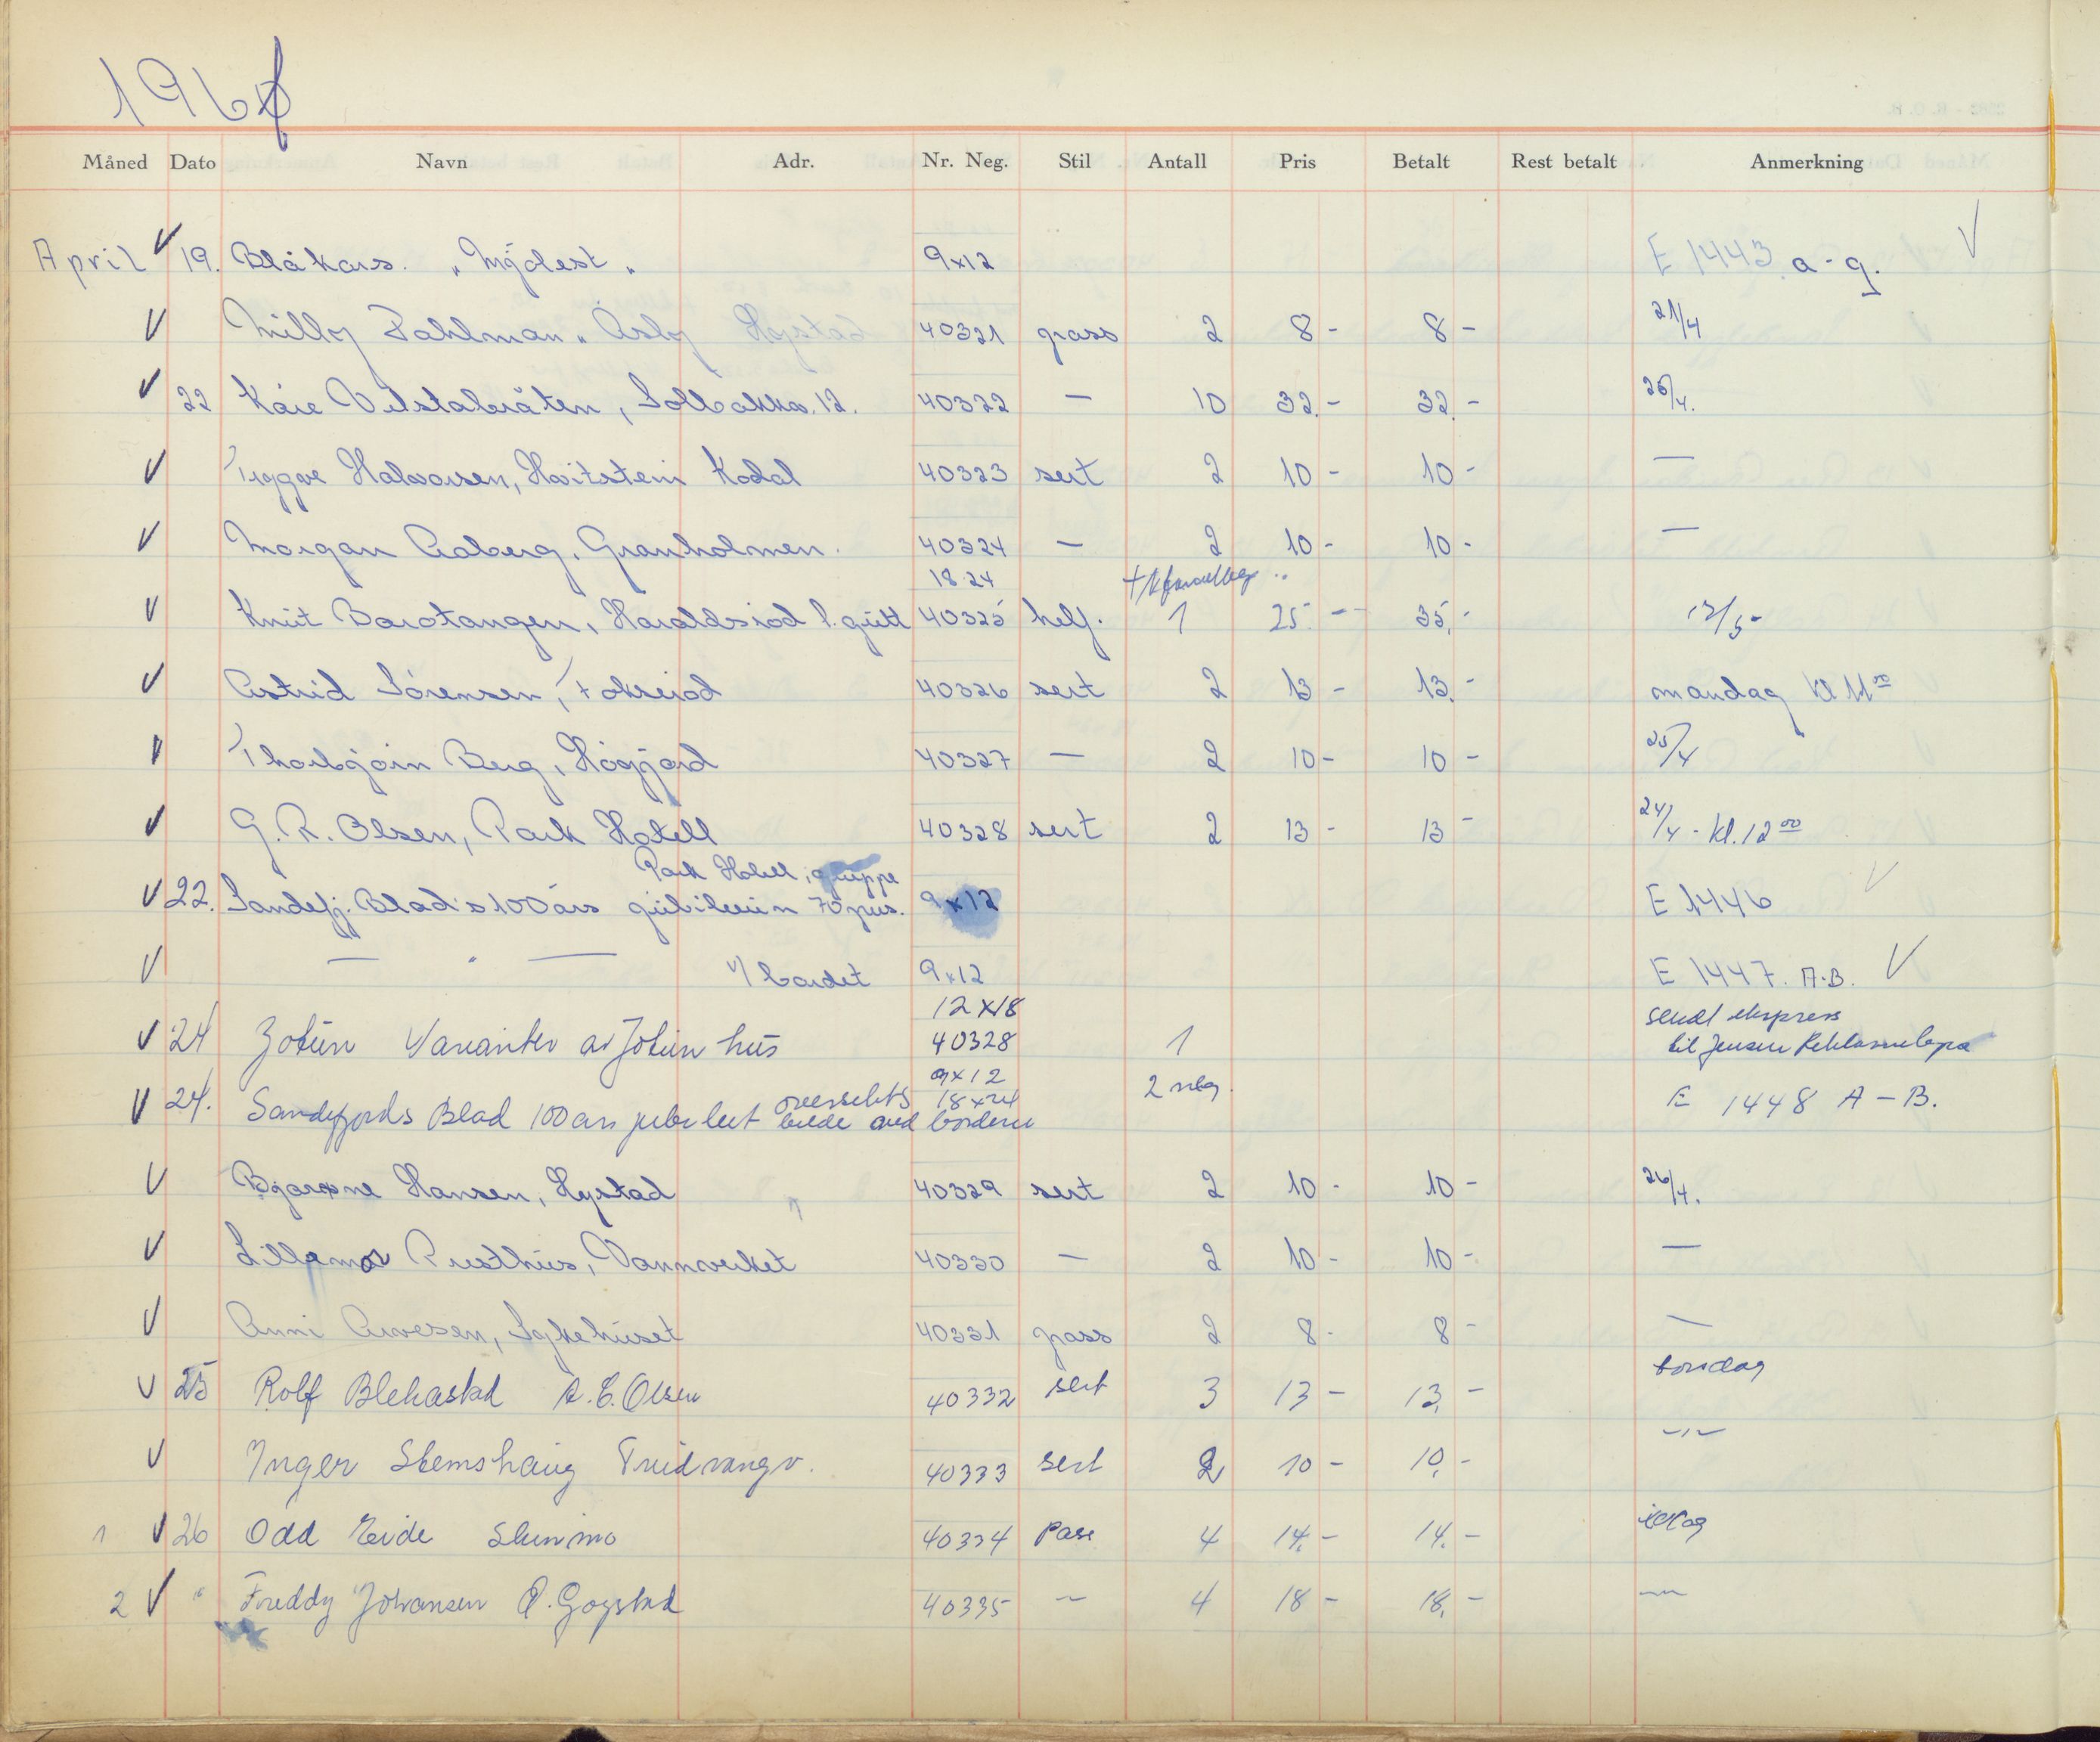 1961
Måned Dato Navn Adr. Nr. Neg. Stil Antall Pris Betalt Rest betalt Anmerkning
April V 19. Blåkors. "Mjølest" 9x12 E 1443 a-g. V
V Milly Dahlman "Åsly Hystad 40321 pass 2 8 - 8 - 21/4
V 22 Kåre Vilstabråten, Solbakka. 12. 40322 — 10 32. - 32. - 25/4.
V Tryggve Halvorsen, Hvitstein Kodal 40323 sert 2 10 - 10 - —
V Morgan Aaberg, Granholmen. 40324 — 2 10 - 10 - —
18.24
V Knut Barotangen, Haraldsrød l. gutt 40325 helf. 1 25. -- 35. - 13/5-
V Astrid Sørensen, Fokserød 40326 sert 2 13 - 13. - mandag kl 11 00
V Thorbjørn Berg, Høgjord 40327 — 2 10 - 10 - 25/4
V G. R. Olsen, Park Hotell 40328 sert 2 13 - 13 - 24/4 - kl. 12 00
Park Hotell, gruppe
V 22. Sandefj. Blad's 100 års jubileum 70 pers. 9x12 E 1446 V
V — " — v/ bordet 9x12 E 1447. A-B. V
12 x 18 sendt ekspress
V 24 Jotun Varianter av Jotun hus 40328 1 til Jensen Reklame
9x12 2 neg.
V 24. Sandefjords Blad 100 års oversikts bilde ved bordene 18 x 24 E 1448 A - B.
V Bjarne Hansen, Hystad 40329 sert 2 10 - 10 - 26/4.
V Lillemor Presthus, Vannverket 40330 — 2 10 - 10 - —
V Anni Arvesen, Sykehuset 40331 pass 2 8 - 8 - —
V 25 Rolf Blekastad A. E. Olsen 40332 sert 3 13 - 13. - torsdag
V Inger Stemshaug Fridvangv. 40333 sert 2 10 - 10. - -"-
1 V 26 Odd Eide 40334 Pass 4 14. - 14. -
2 V " Freddy Johansen Ø. Gogstad 40335 — 4 18 - 18. - —